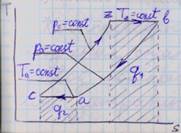 T
p₂=const
z
T₀=const
b
p₀=const
T₀=const
q₁
c
a
q₂
s